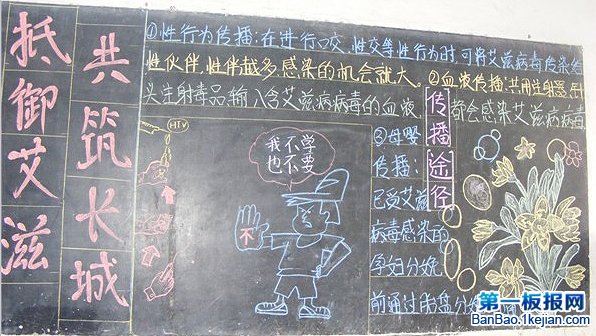 抵御艾滋
共筑长城
①性行为传播:在进行口交、性交等性行为时,可将艾滋病毒传染给
性伙伴,性伴越多感染的机会就大。②血液传播:共用注射器、针
头注射毒品,输入含艾滋病病毒的血液,都会感染艾滋病病毒
传播途径
HIV
我不学
也不要
不
③母婴
传播:
已受艾滋
病毒感染的
孕妇分娩
前通过胎盘分娩
第一板报网
BanBao.1kejian.com